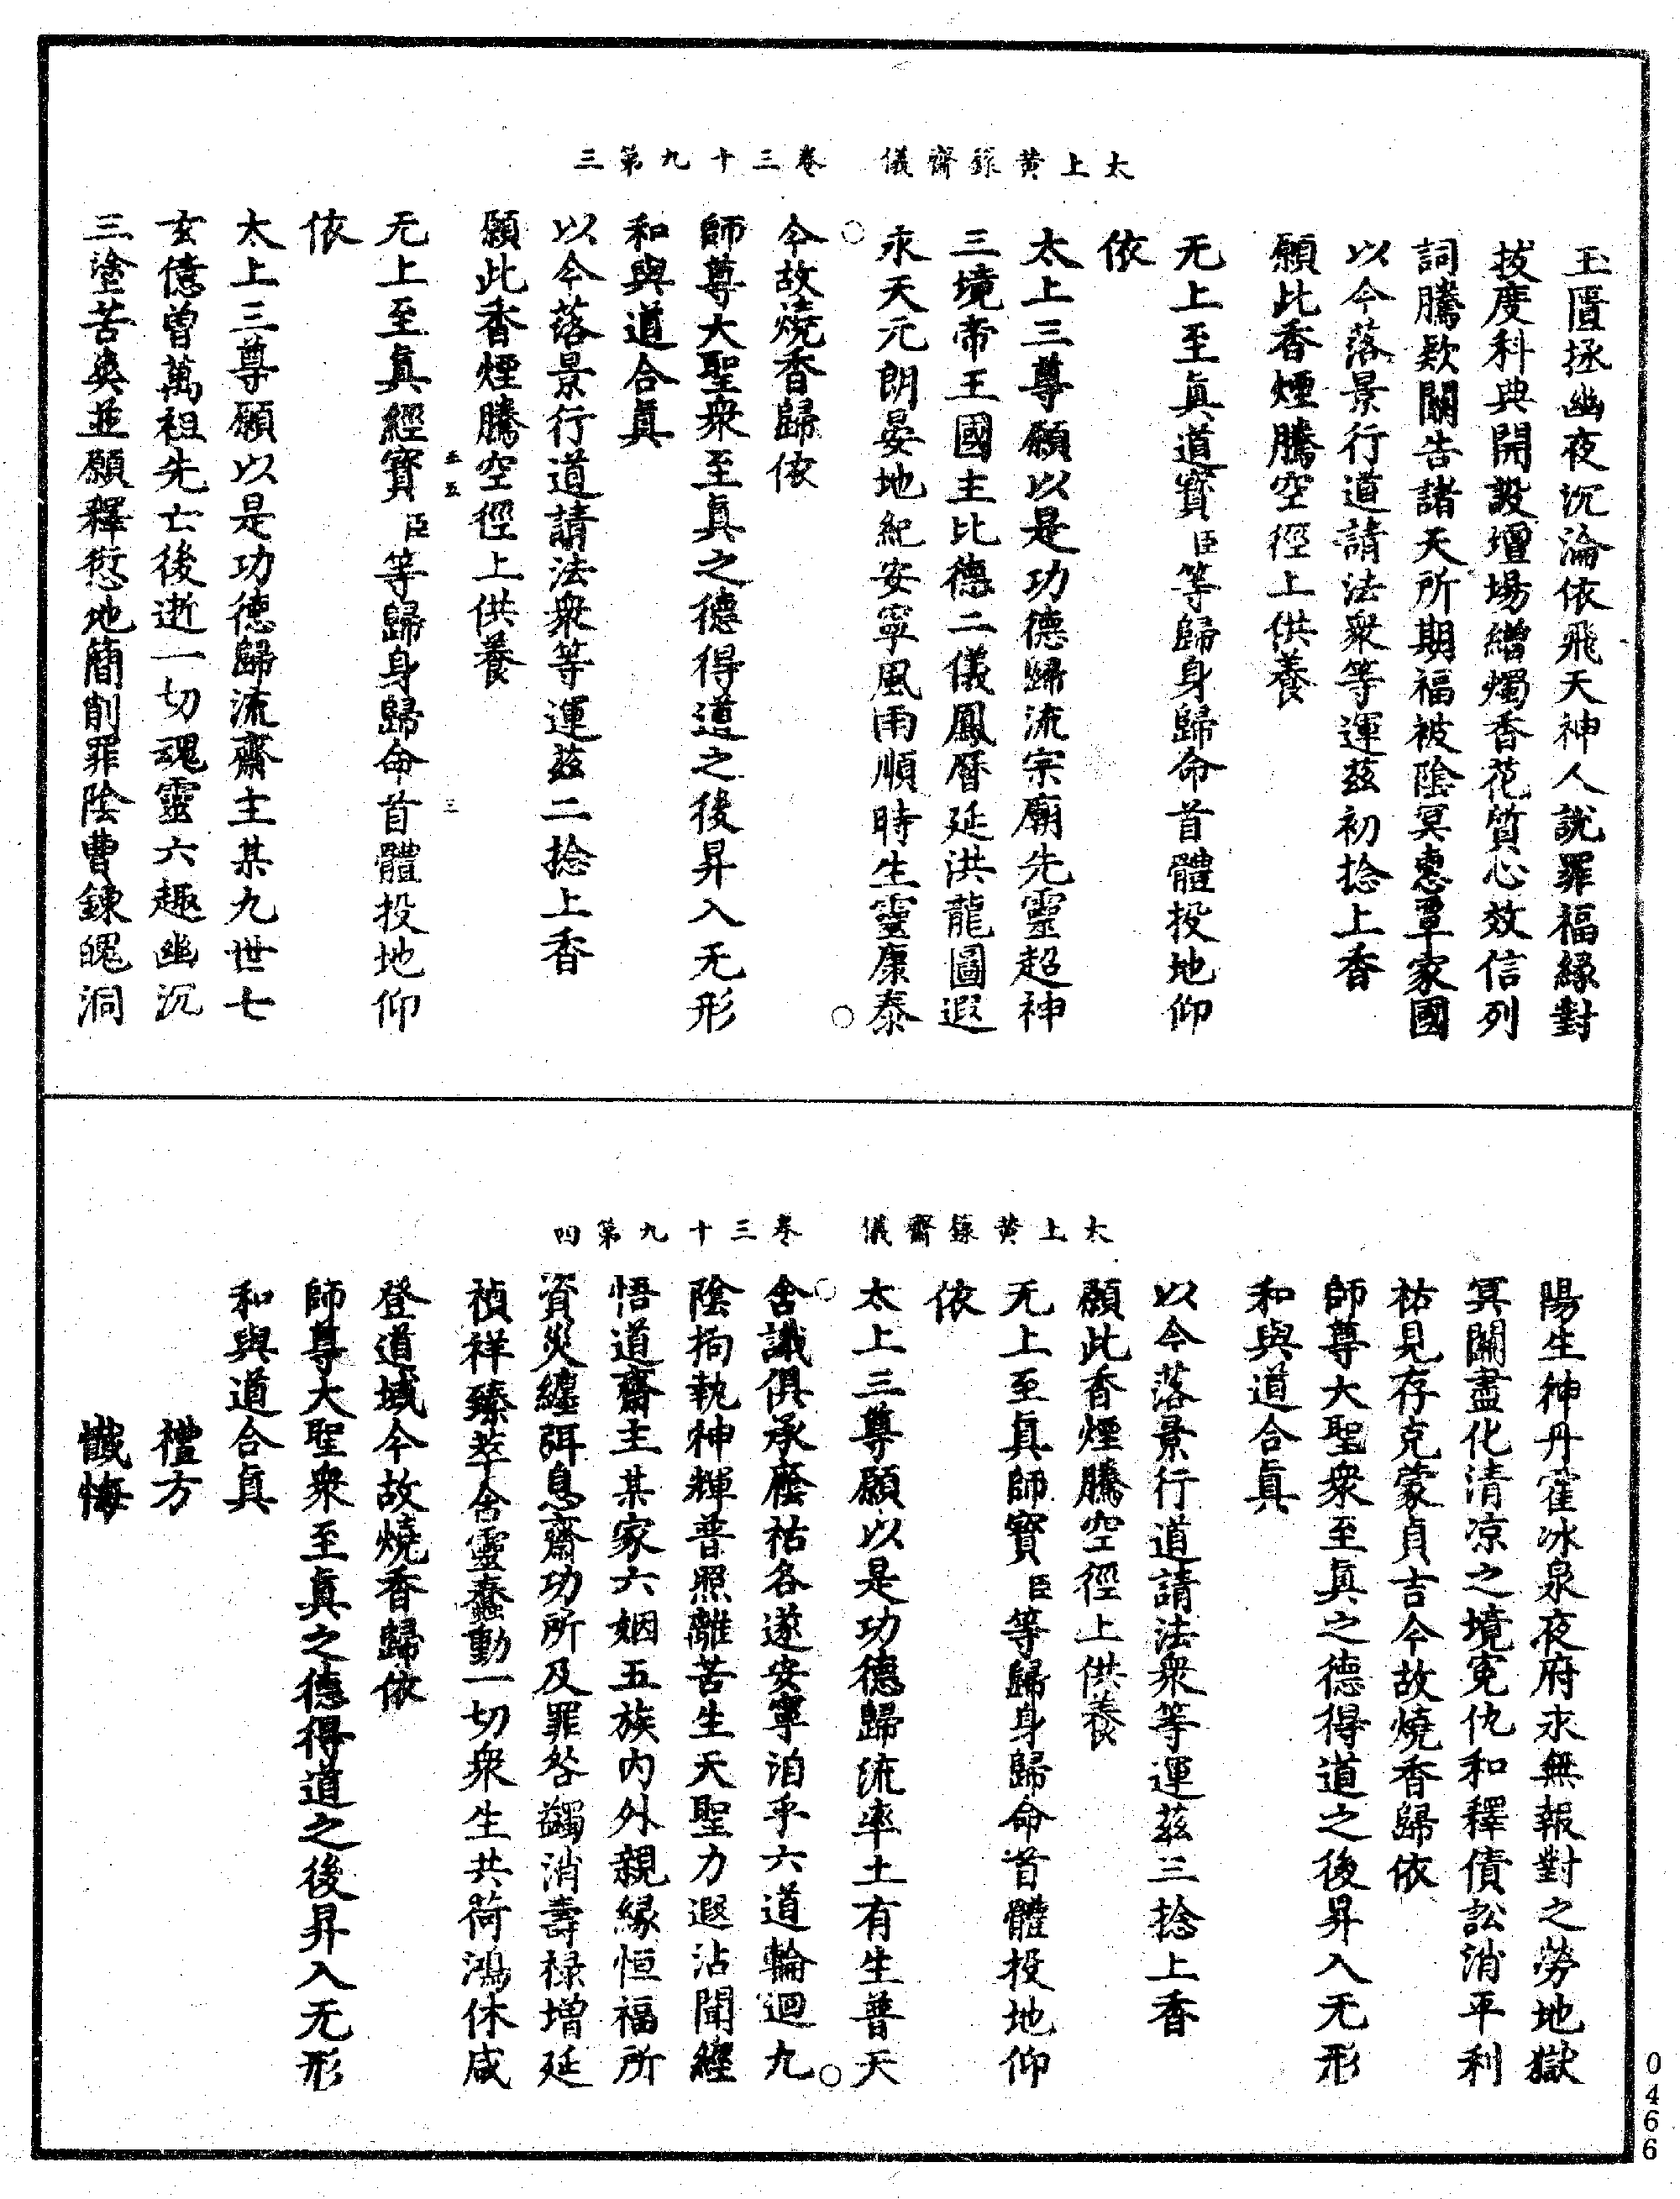 太上黄籙齋儀 卷三十九第三
玉匱拯幽夜沉淪依飛天神人說罪福緣對
拔度科典開設壇場繒燭香花質心效信列
詞騰欵關告諸天所期福被陰冥惠覃家國
以今落景行道請法衆等運茲初捻上香
願此香煙騰空徑上供養
无上至眞道寶臣等歸身歸命首體投地仰
依
太上三尊願以是功德歸流宗廟先靈超神
三境帝王國主比德二儀鳳曆延洪龍圖遐
永天元朗晏地紀安寧風雨順時生靈康泰
今故燒香歸依
師尊大聖衆至眞之德得道之後昇入无形
和與道合眞
以今落景行道請法衆等運茲二捻上香
願此香煙騰空徑上供養
无上至眞經寶臣等歸身歸命首體投地仰
依
太上三尊願以是功德歸流齋主某九世七
玄億曾萬祖先亡後逝一切魂靈六趣幽沉
三塗苦爽並願釋愆地簡削罪陰曹鍊魄洞
太上黄籙齋儀 卷三十九第四
陽生神丹霍冰泉夜府永無報對之勞地獄
冥關盡化清凉之境寃仇和釋債訟消平利
祐見存克蒙貞吉今故燒香歸依
師尊大聖衆至眞之德得道之後昇入无形
和與道合眞
以今落景行道請法衆等運茲三捻上香
願此香煙騰空徑上供養
无上至眞師寶臣等歸身歸命首體投地仰
依
太上三尊願以是功德歸流率土有生普天
含識俱承廕祜各遂安寧洎乎六道輪迴九
陰拘執神輝普照離苦生天聖力遐沾聞經
悟道齋主某家六姻五族內外親緣恒福所
資災纏弭息齋功所及罪咎蠲消壽祿增延
禎祥臻萃含靈蠢動一切衆生共荷鴻休咸
登道域今故燒香歸依
師尊大聖衆至眞之德得道之後昇入无形
和與道合眞
禮方
懺悔
0466